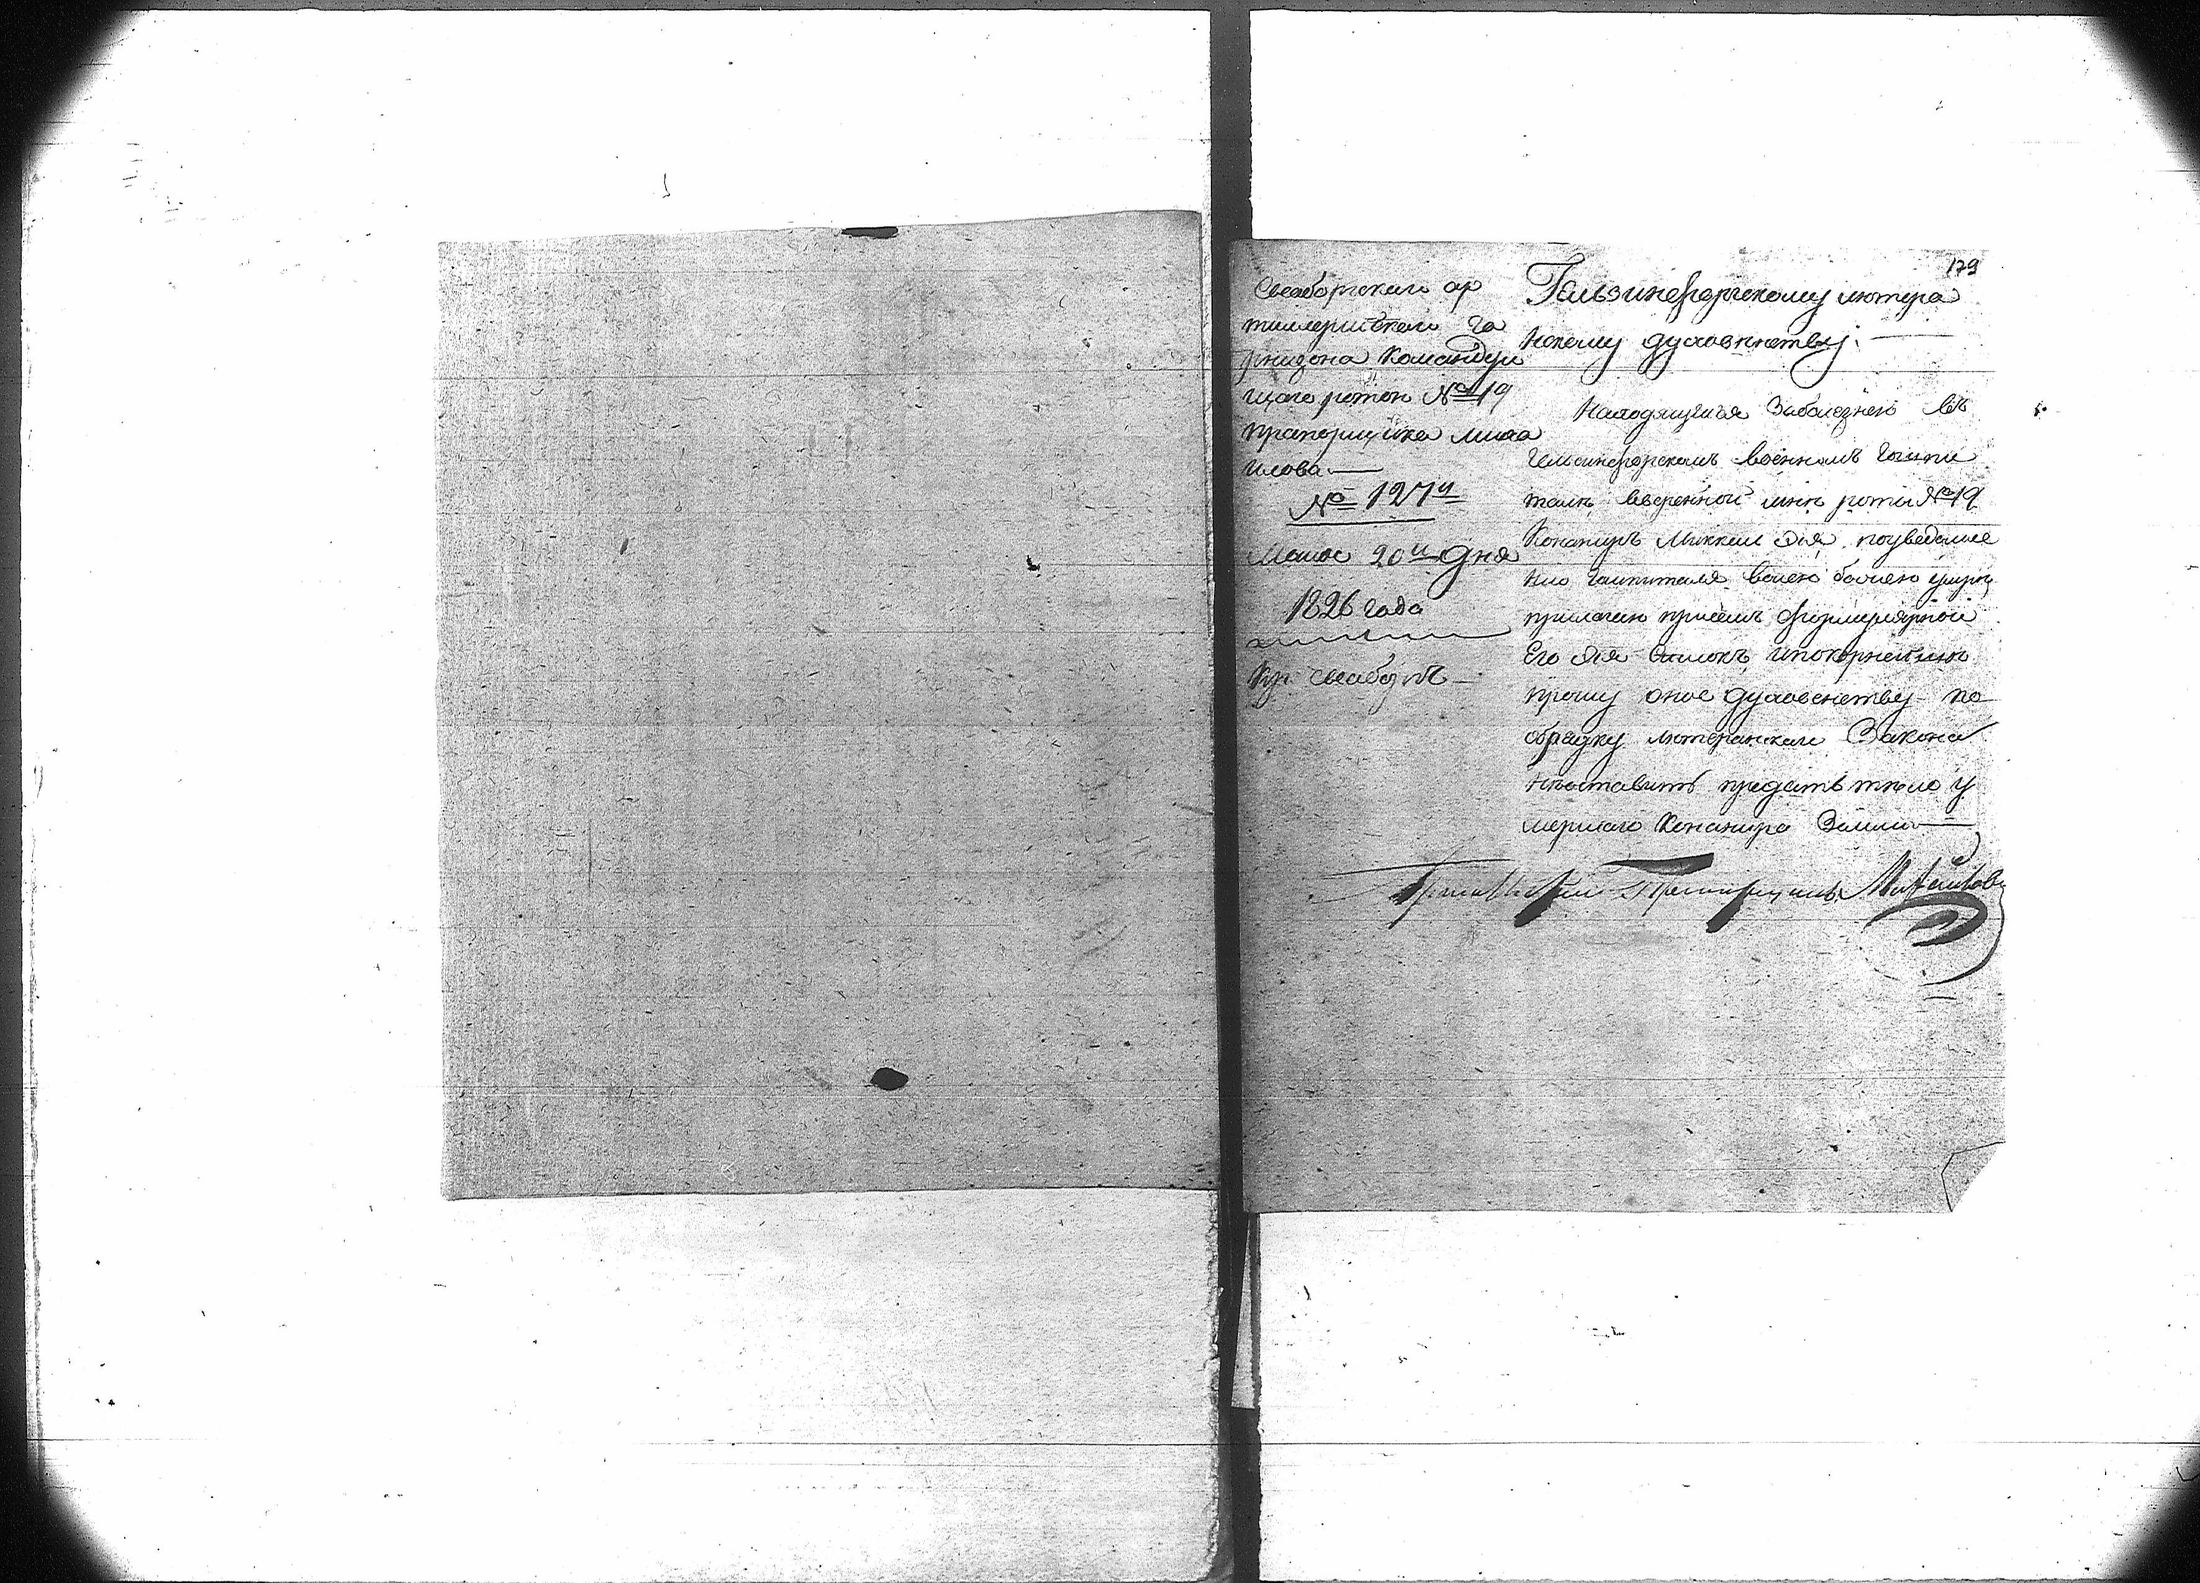 179
Свеаборгскаго ар
тиллерiйскаго га
рнизона Командую
щаго ротою № 19
прапорщика Миха
илова
№ 127й
Маiя 20го дня
1826 года
Кр: Свеаборгъ
Гельзинсфорскому лютера
нскому духовенству:
Находящейся заболезнею въ
Гельсинсфорскомъ военномъ госпи
тале вверенной мне роты № 19
Канониръ Миккел поуведомле
нию гошпиталя волею божею умре
прилагаю присемъ формулярной
Его списокъ ипокорнейше
прошу оное духовенству по
обрядку лютеранскаго Закона
неоставить предать тело у
мершаго Канонира Земли
Прапорщикъ Михайловъ